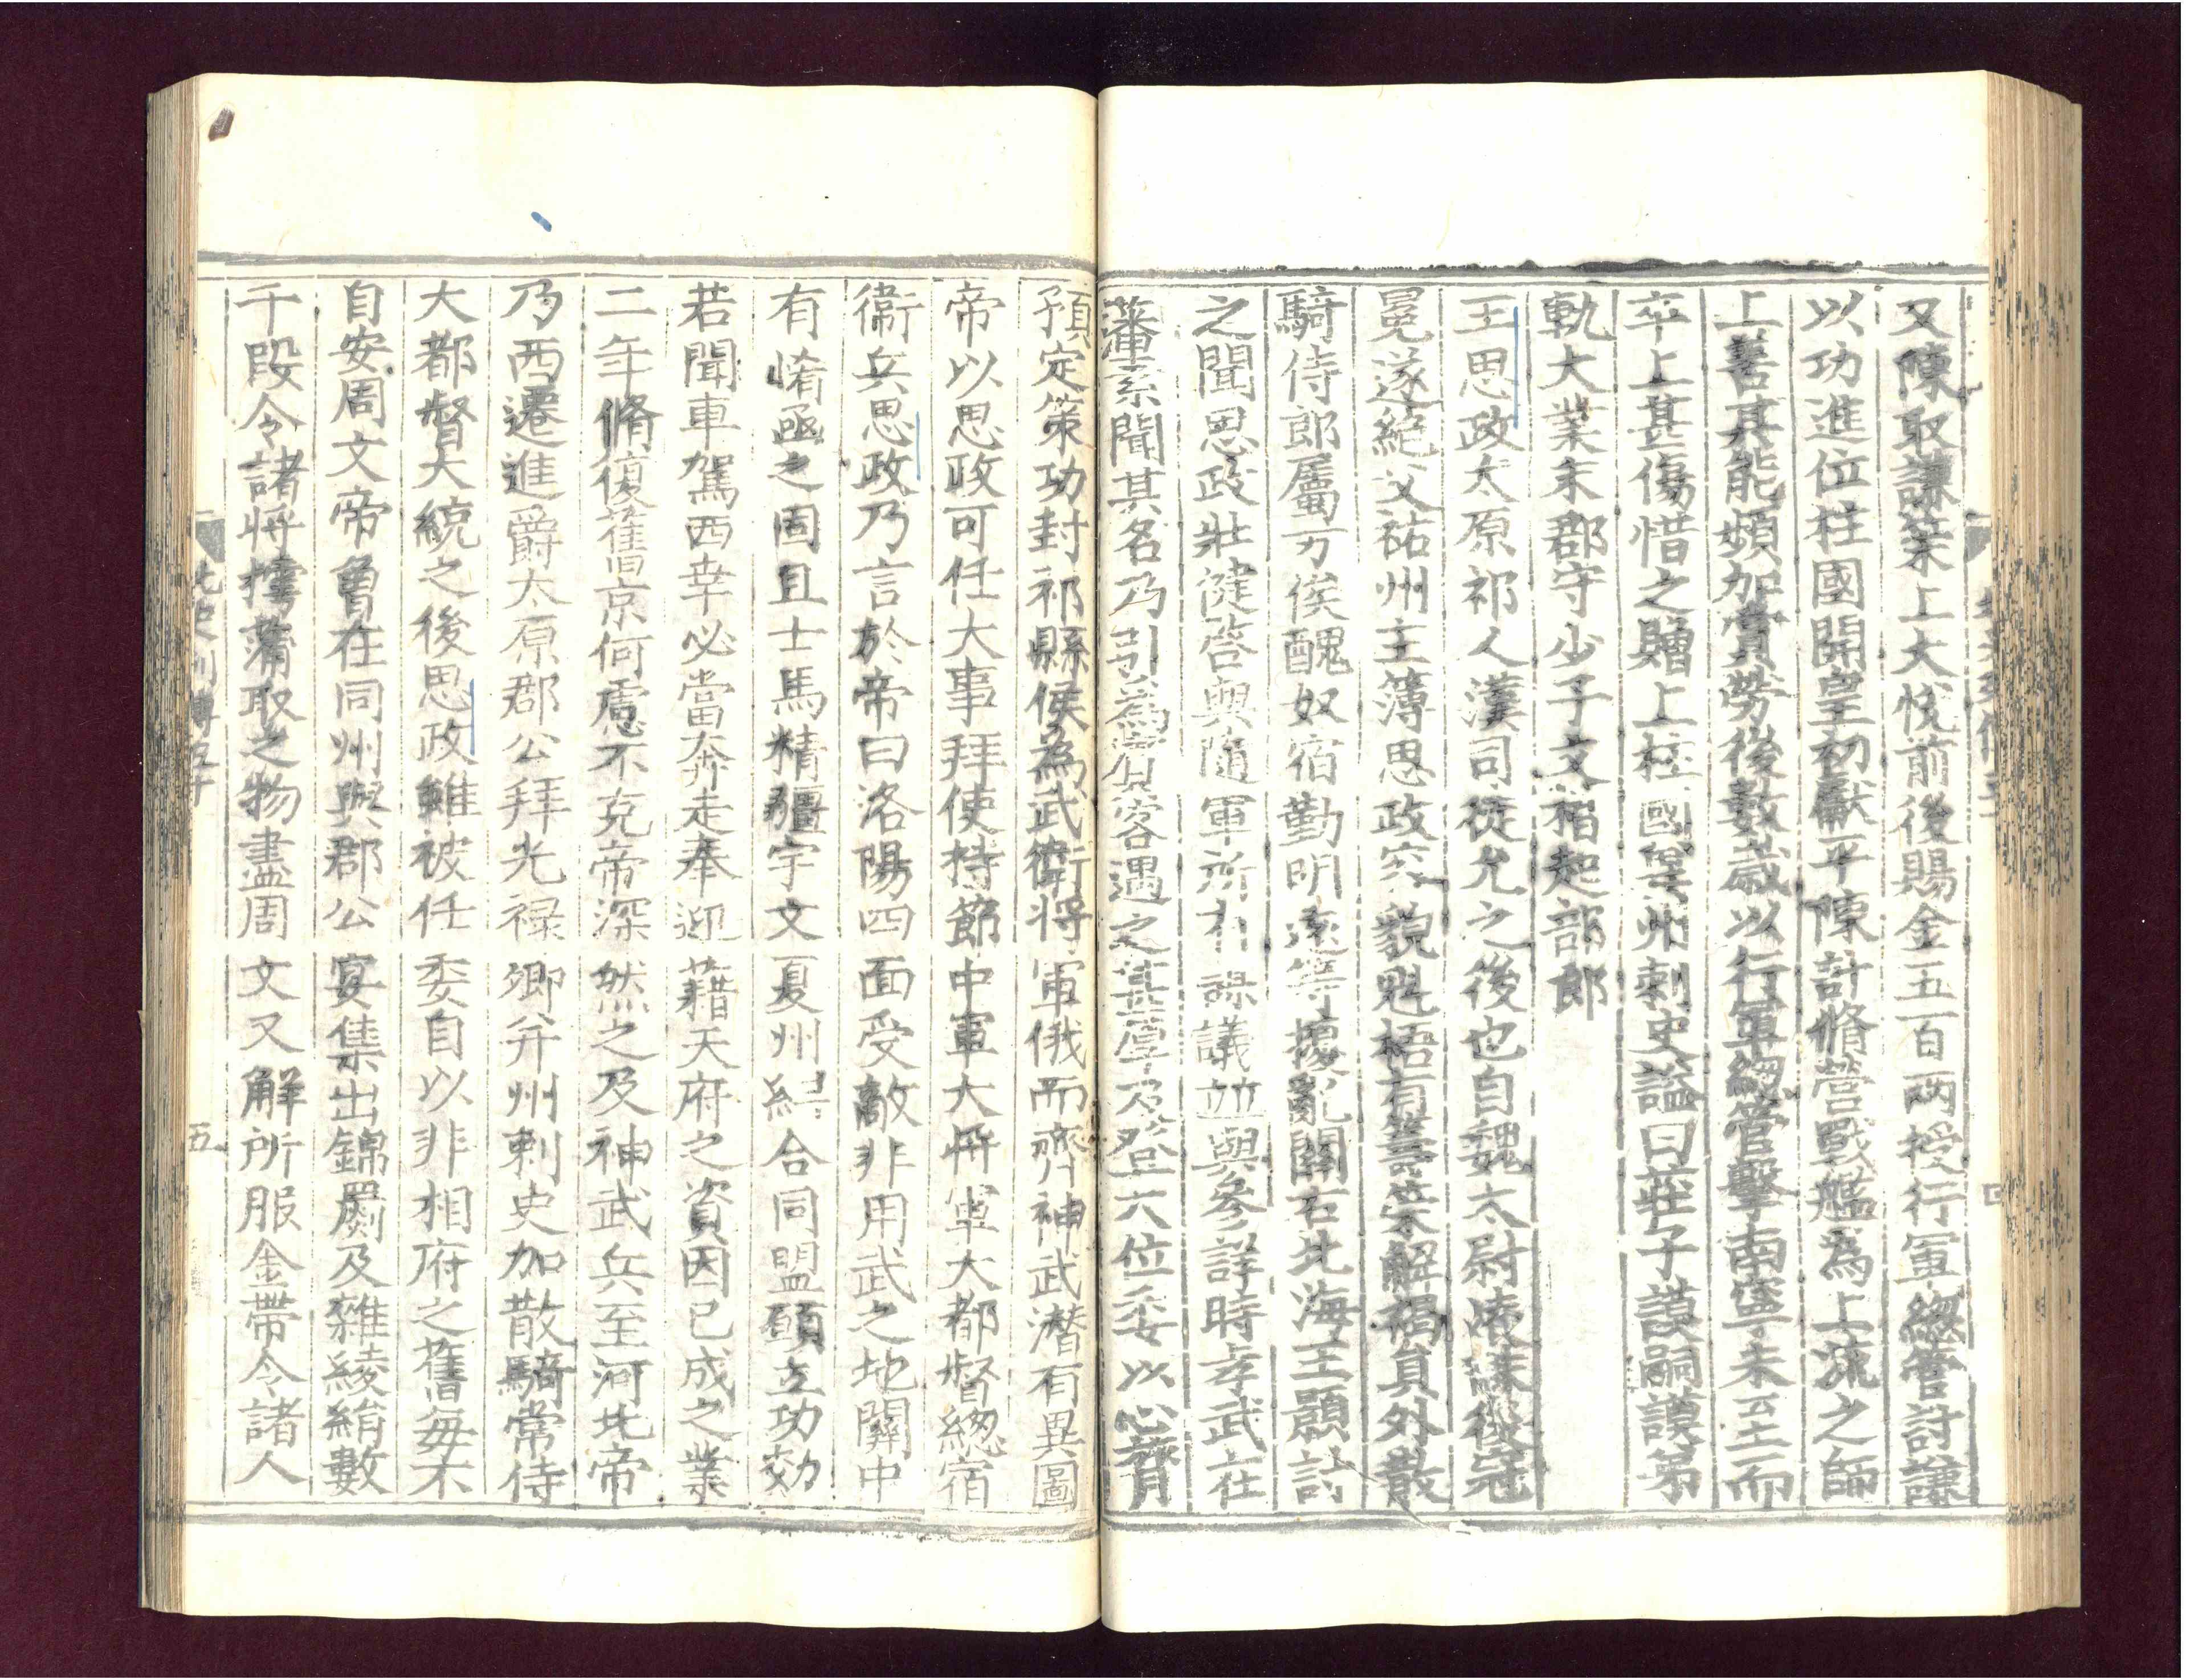 又陳取謙策上大悅前後賜金五百兩授行軍緫管討謙
以功進位柱國開皇初獻平陳計脩營戰艦為上流之師
上善其能頻加賞勞後數歲以行軍緫管擊南寧未至而
卒上甚傷惜之贈上柱國州刺史謚曰莊子謨嗣謨弟
軌大業末郡守少子文楷起部郎
王思政太原祁人漢司徒允之後也自魏太尉陵謀後冠
冕遂絶父祐州主簿思政容貌魁梧有籌策解褐負外散
騎侍郎屬万俟醜奴宿勤明逺等擾亂關右北海王顥討
之聞思政壯健啓與随軍所有謀議並與參詳時孝武在
藩素聞其名乃引為賔客遇之甚厚及登大位委以心膂
預定策功封祁縣侯為武衛將軍俄而齊神武潜有異圖
帝以思政可任大事拜使持節中軍大將軍大都督緫宿
衛兵思政乃言於帝曰洛陽四面受敵非用武之地關中
有崤函之固且士馬精彊宇文夏州紏合同盟願立功効
若聞車駕西幸必當奔走奉迎藉天府之資因已成之業
二年脩復舊京何慮不克帝深然之及神武兵至河北帝
乃西遷進爵太原郡公拜光祿卿并州刺史加散騎常侍
大都督大統之後思政雖被任委自以非相府之舊每不
自安周文帝曾在同州與郡公宴集出錦罽及雜綾絹數
千段令諸將摴蒲取之物盡周文又解所服金帶令諸人
北史列傳五十
五